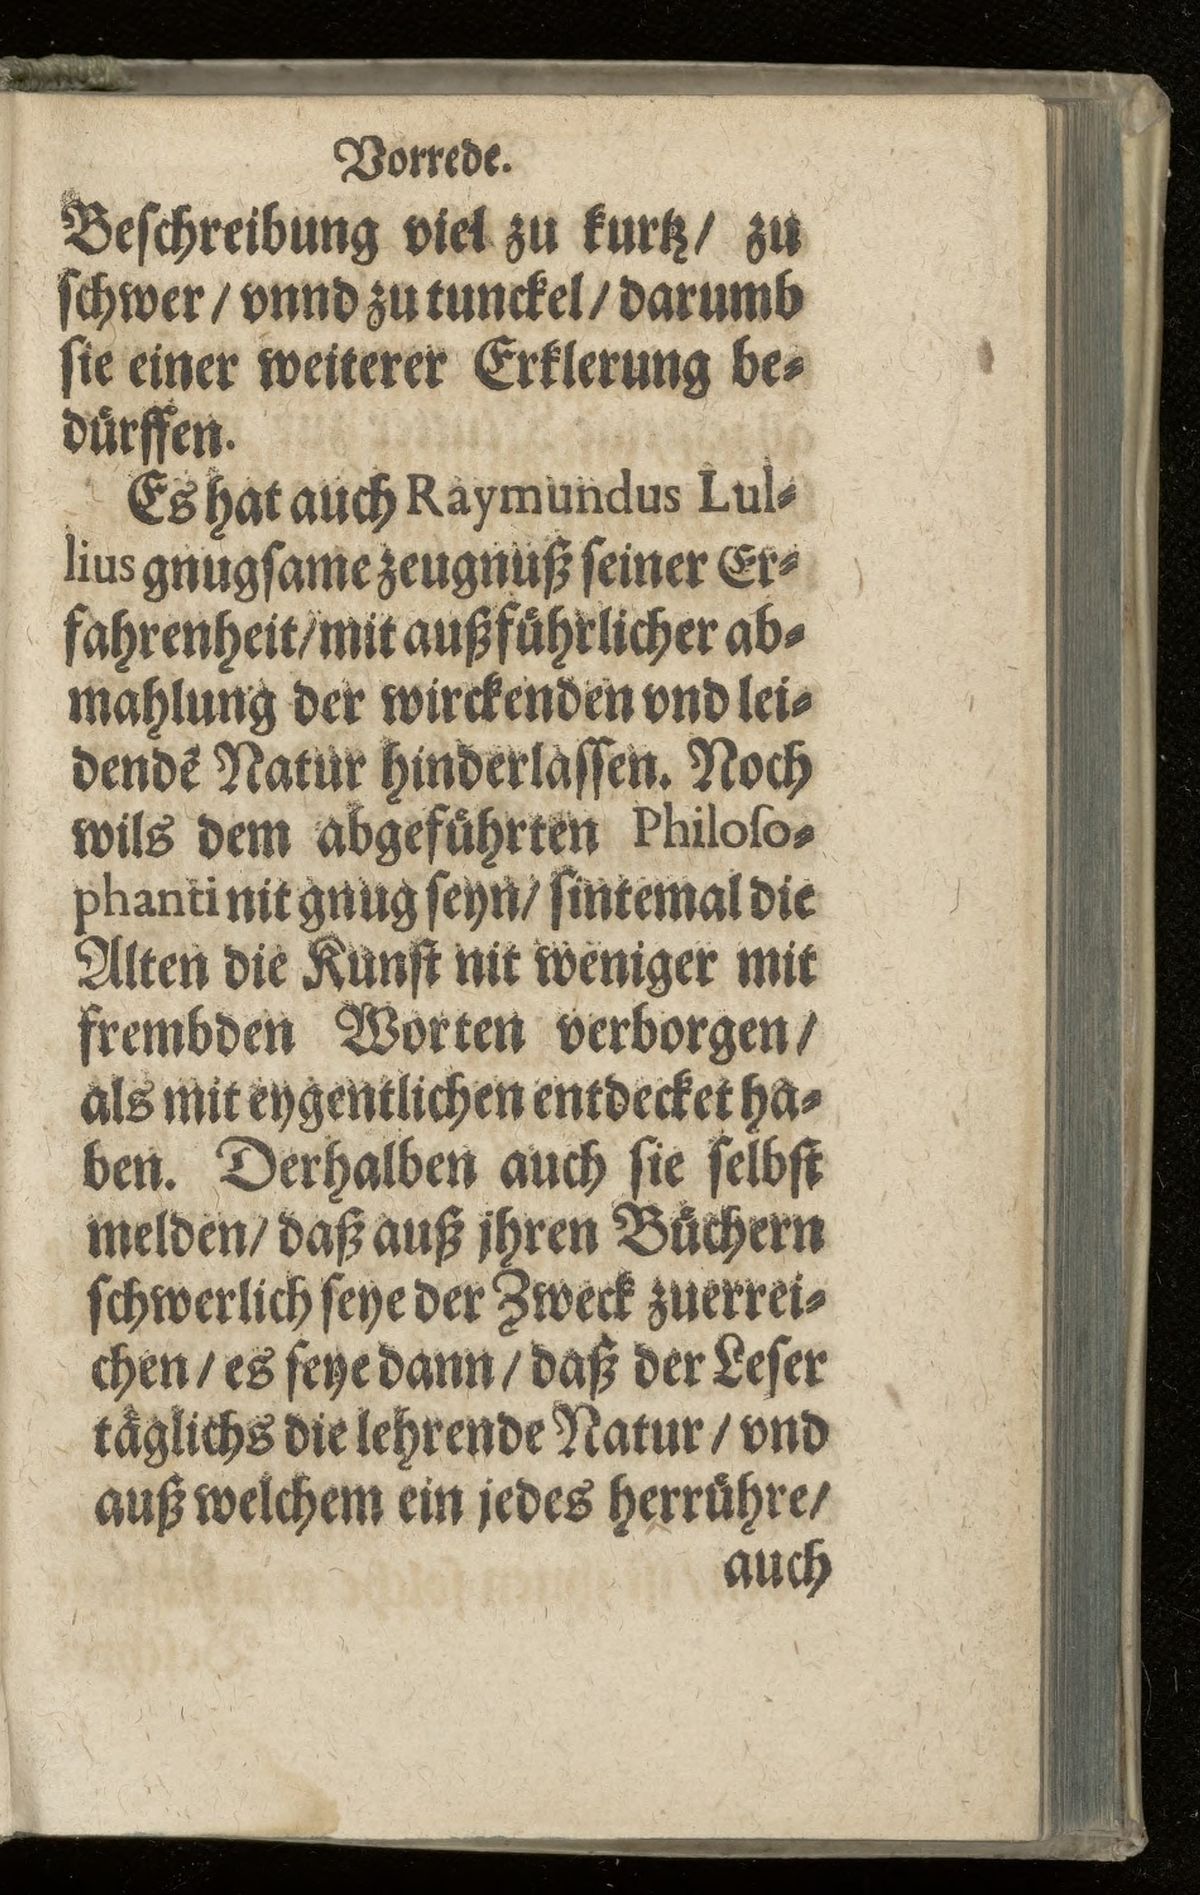 Vorrede.
Beſchreibung viel zu kurtz/ zu
ſchwer/ vnnd zu tunckel/ darumb
ſie einer weiterer Erklerung be-
duͤrffen.
Es hat auch Raymundus Lul-
lius gnugſame zeugnuß ſeiner Er-
fahrenheit/ mit außfuͤhrlicher ab-
mahlung der wirckenden vnd lei-
dendẽ Natur hinderlaſſen. Noch
wils dem abgefuͤhrten Philoſo-
phanti nit gnug ſeyn/ ſintemal die
Alten die Kunſt nit weniger mit
frembden Worten verborgen/
als mit eygentlichen entdecket ha-
ben. Derhalben auch ſie ſelbſt
melden/ daß auß jhren Buͤchern
ſchwerlich ſeye der Zweck zuerrei-
chen/ es ſeye dann/ daß der Leſer
taͤglichs die lehrende Natur/ vnd
auß welchem ein jedes herruͤhre/
auch